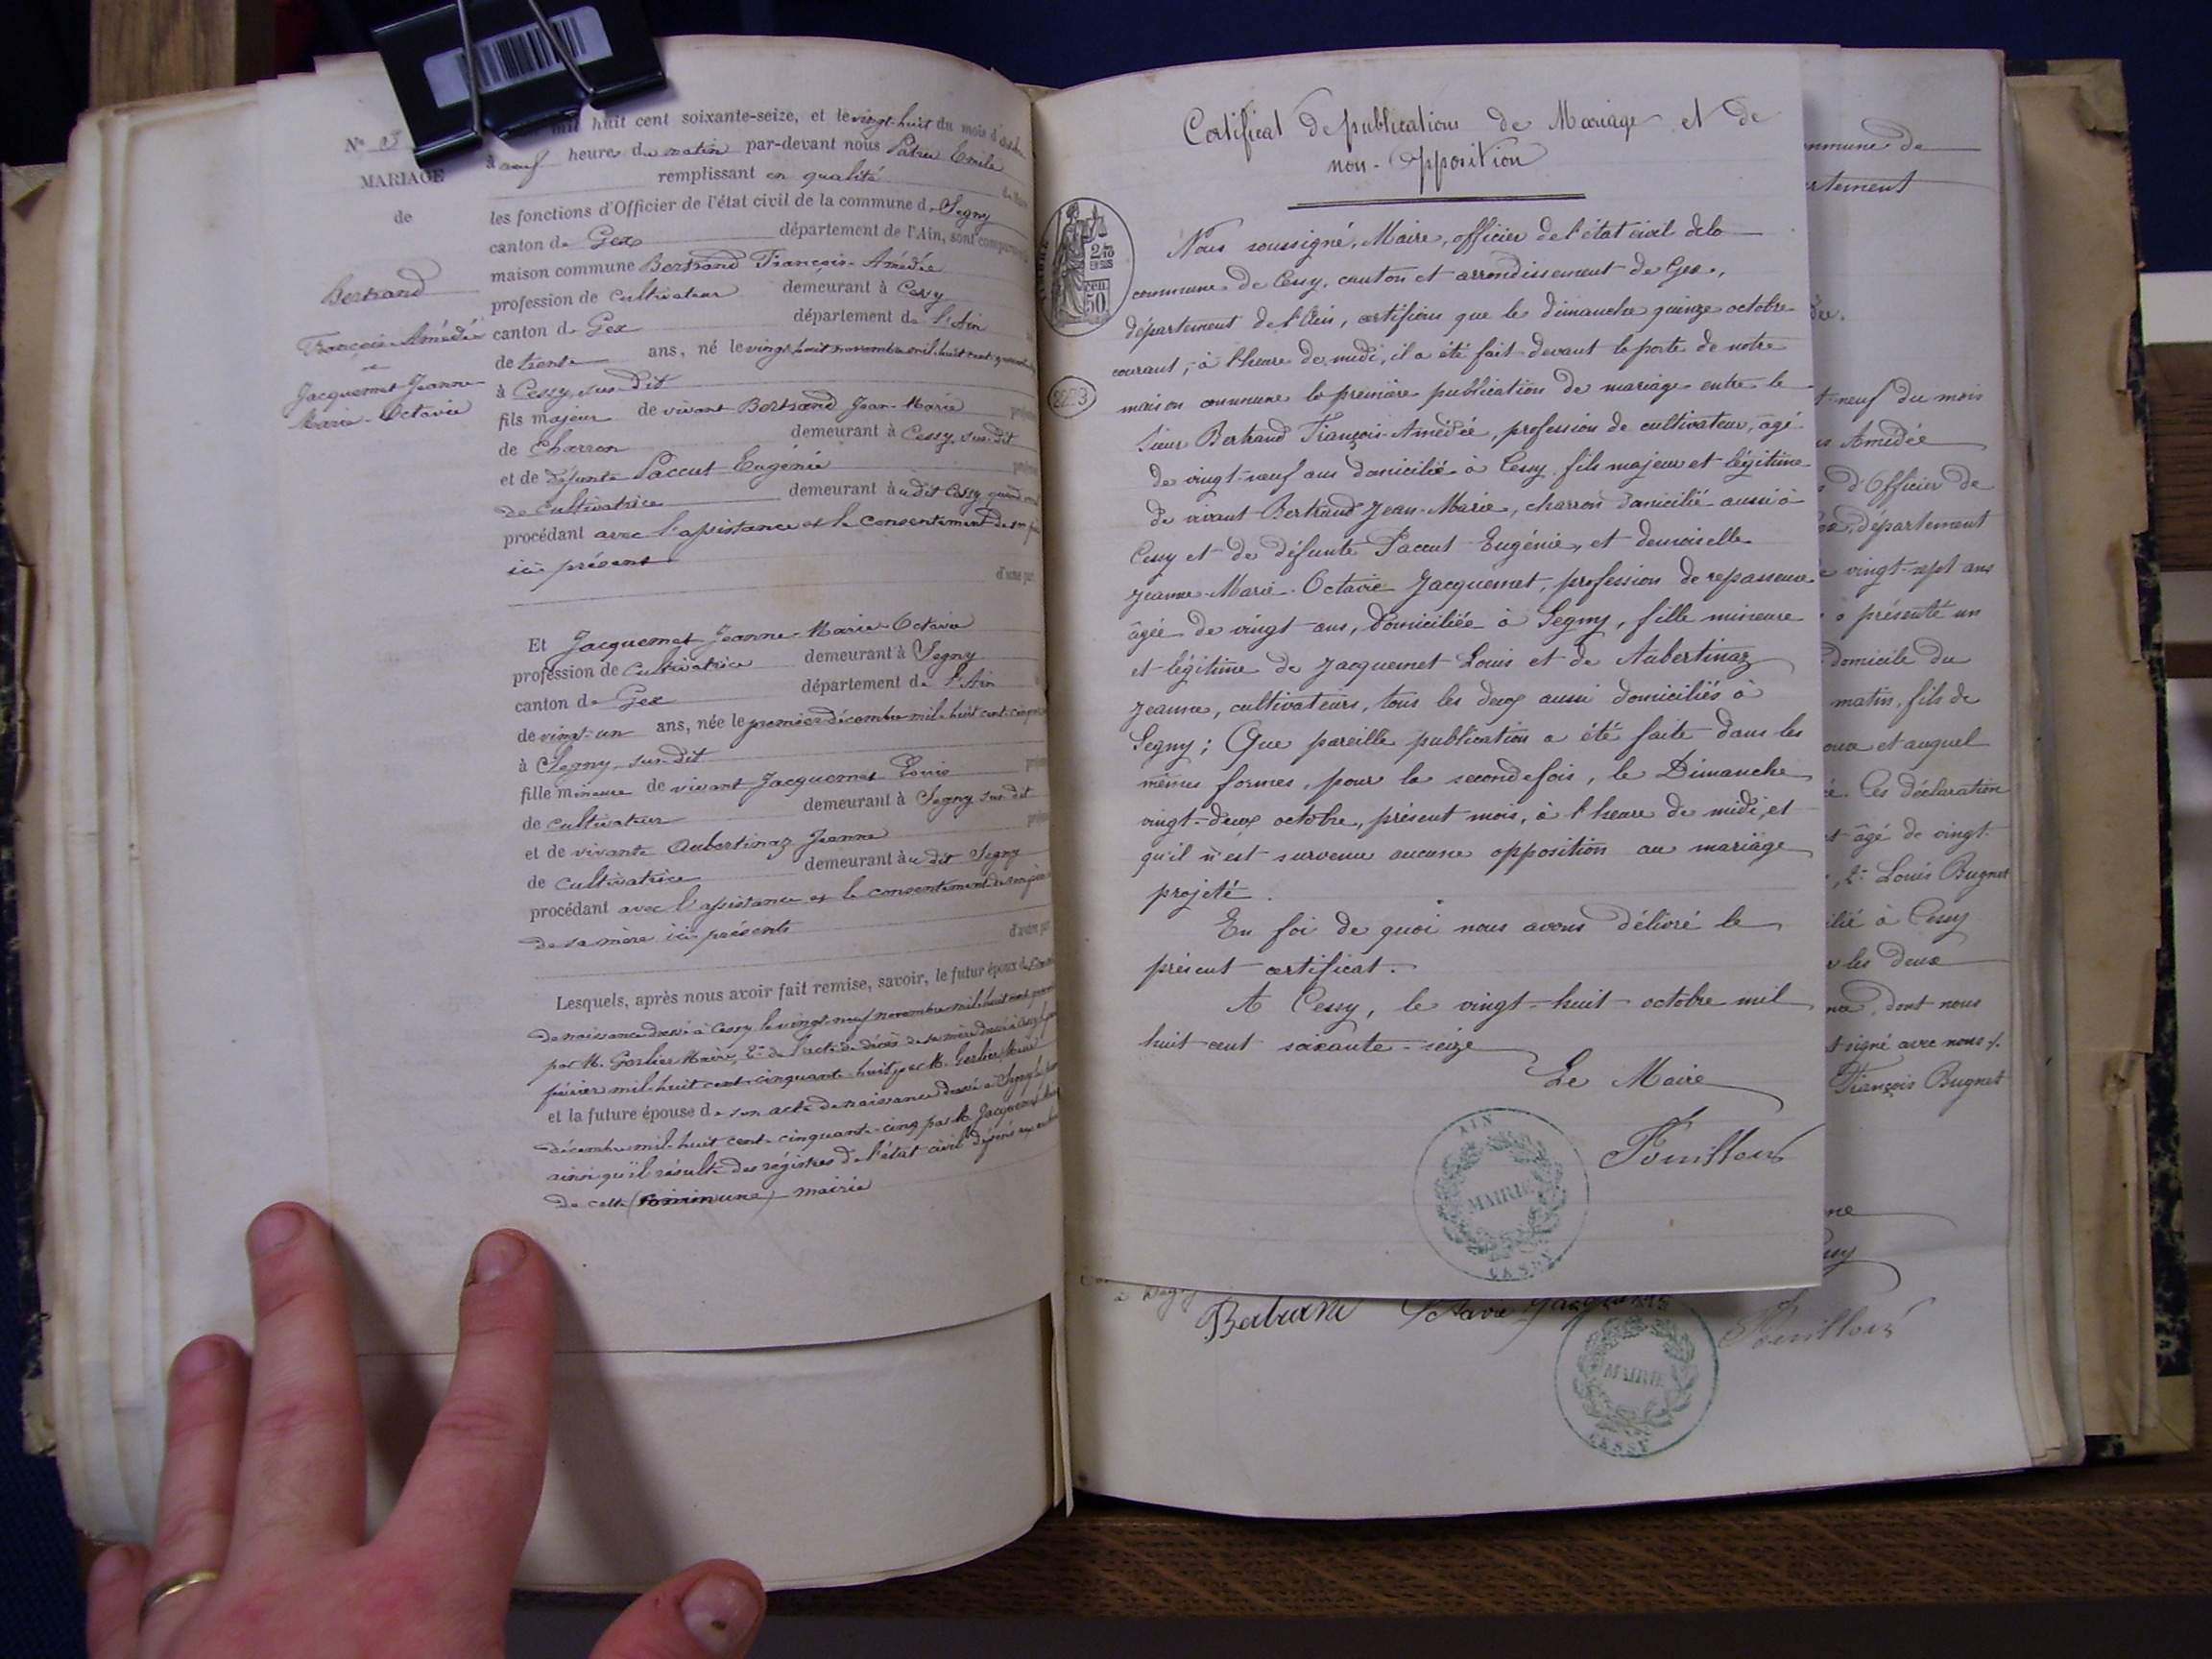 N° 3
MARIAGE
de
Bertrand
François-Amédée
et
Jacquemet Jeanne
Marie-Octavie
huit cent soixante-seize, et le vingt-huit du mois d'octobre
à neuf heures du matin par-devant nous Patru Emile
remplissant en qualité de Maire
les fonctions d'Officier de l'état civil de la commune de Segny
canton de Gex département de l'Ain, sont comparus
maison commune Bertrand François-Amédée
profession de cultivateur demeurant à Cessy
canton de Gex département de l'Ain
de trente ans, né le vingt huit novembre mil-huit cent quarante
à Cessy sus-dit
fils majeur de vivant Bertrand Jean-Marie
de Charron demeurant à Cessy, sus-dit
et de défunte Paccut Eugénie
de cultivatrice demeurant au dit Cessy quand
procédant avec l'assistance et le consentement de son père
ici présent
d'une part
Et Jacquemet Jeanne-Marie-Octavie
profession de cultivatrice demeurant à Segny
canton de Gex département de l'Ain
de vingt-un ans, née le premier décembre mil-huit cent cinquante
à Segny sus-dit
fille mineure de vivant Jacquemet Louis
de cultivateur demeurant à Segny sus-dit
et de vivante Aubertinaz Jeanne
de cultivatrice demeurant au dit Segny
procédant avec l'assistance et le consentement de son père
de sa mère ici présents
d'autre part
Lesquels, après nous avoir fait remise, savoir, le futur époux de son
de naissance dressé à Cessy le vingt-neuf novembre mil-huit cent
par M. Gerlier Maire, 2° de l'acte de décès de sa mère dressé à Cessy
février mil-huit cent-cinquante-huit par M. Gerlier Maire
et la future épouse de son acte de naissance dressé à Segny le
décembre mil-huit cent-cinquante-cinq par M. Jacquemet
ainsi qu'il résulte des régistres de l'état civil déposés aux archives
de cette (commune) mairie
Certificat de publications de Mariage et de
non-Opposition
2/10
EN SUS
50 CEN
2223
Nous soussigné, Maire, officier de l'état civil de la
commune de Cessy, canton et arrondissement de Gex,
département de l'Ain, certifions que le dimanche quinze octobre
courant, à l'heure de midi, il a été fait devant la porte de notre
maison commune la première publication de mariage entre le
Sieur Bertrand François-Amédée, profession de cultivateur, âgé
de vingt-neuf ans domicilié à Cessy fils majeur et légitime
de vivant Bertrand Jean-Marie, charron domicilié aussi à
Cessy et de défunte Paccut Eugénie, et demoiselle
Jeanne-Marie-Octavie Jacquemet, profession de repasseuse
âgée de vingt ans, domiciliée à Segny, fille mineure
et légitime de Jacquemet Louis et de Aubertinaz
Jeanne, cultivateurs, tous les deux aussi domiciliés à
Segny; Que pareille publication a été faite dans les
mêmes formes, pour la seconde fois, le Dimanche
vingt-deux octobre, présent mois, à l'heure de midi, et
qu'il n'est survenu aucune opposition au mariage
projeté.
En foi de quoi nous avons délivré le
présent certificat.
A Cessy, le vingt-huit octobre mil
huit cent soixante-seize
Le Maire
Fouilloux
AIN
MAIRIE
CESSY
Bertrand Octavie Jacquemet
Fouilloux
MAIRIE
CESSY
commune de
département
neuf du mois
Amédée
d'Officier de
département
vingt-sept ans
a présenté un
domicile du
matin, fils de
et auquel
Ces déclaration
âgé de vingt-
, 2° Louis Bugnet
à Cessy
les deux
dont nous
signé avec nous
François Bugnet